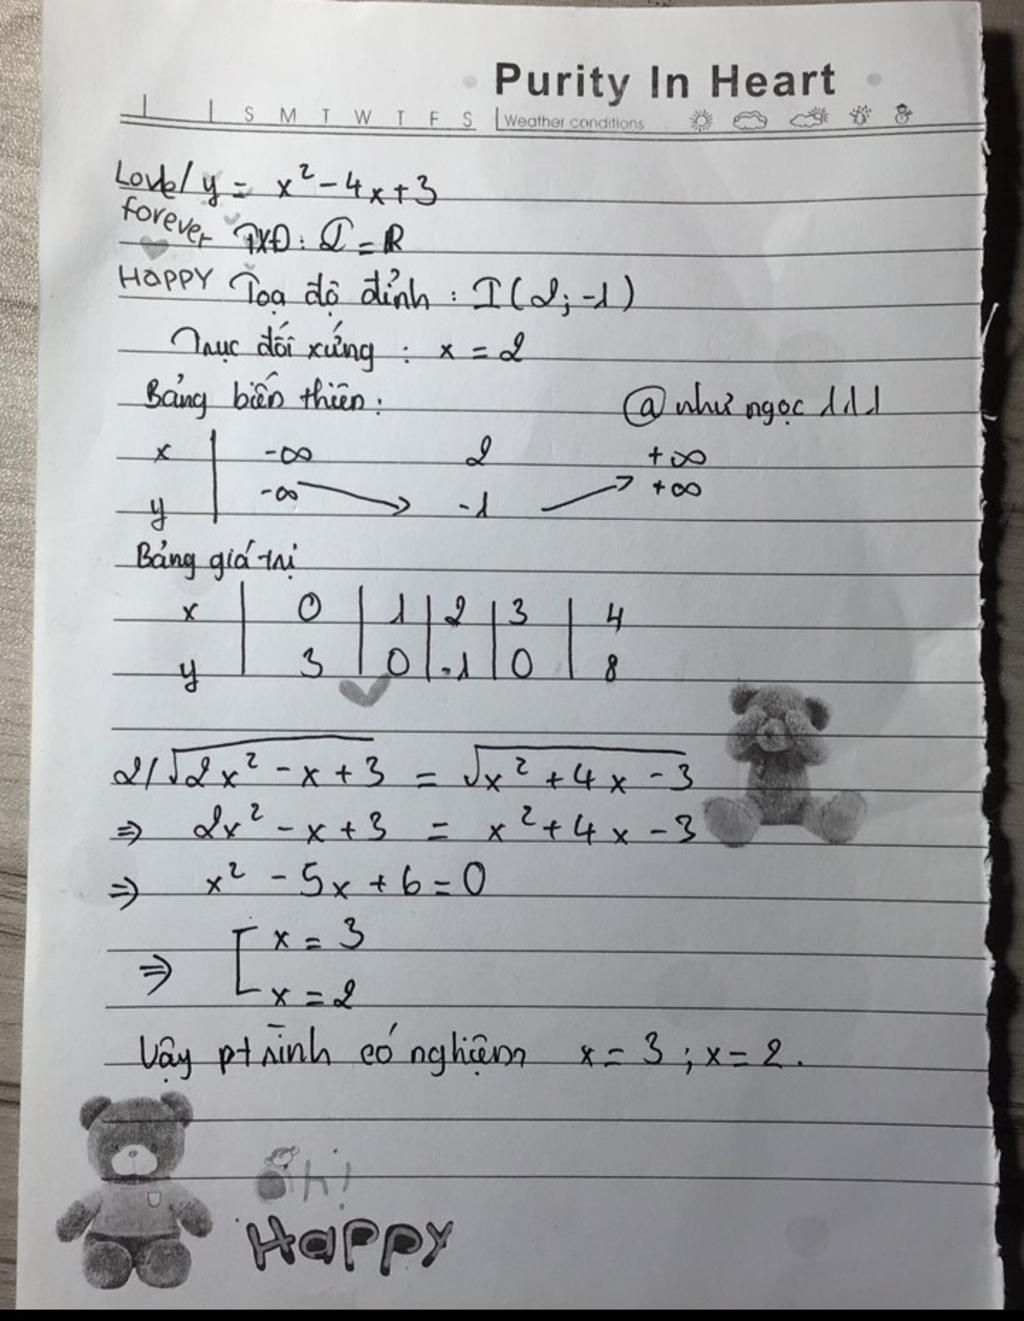 Purity In Heart
S M T W T F S Weather conditions
Love 1/ y = x² - 4x + 3
forever TXĐ: D = R
HAPPY Toạ độ đỉnh : I(2; -1)
Trục đối xứng : x = 2
Bảng biến thiên: @như ngọc 111
x -∞ 2 +∞
y -∞ -1 +∞
Bảng giá trị
x 0 1 2 3 4
y 3 0 -1 0 8
2/ √2x² - x + 3 = √x² + 4x - 3
⇒ 2x² - x + 3 = x² + 4x - 3
⇒ x² - 5x + 6 = 0
⇒ [ x = 3
x = 2
Vậy pt trình có nghiệm x = 3 ; x = 2.
hi!
Happy